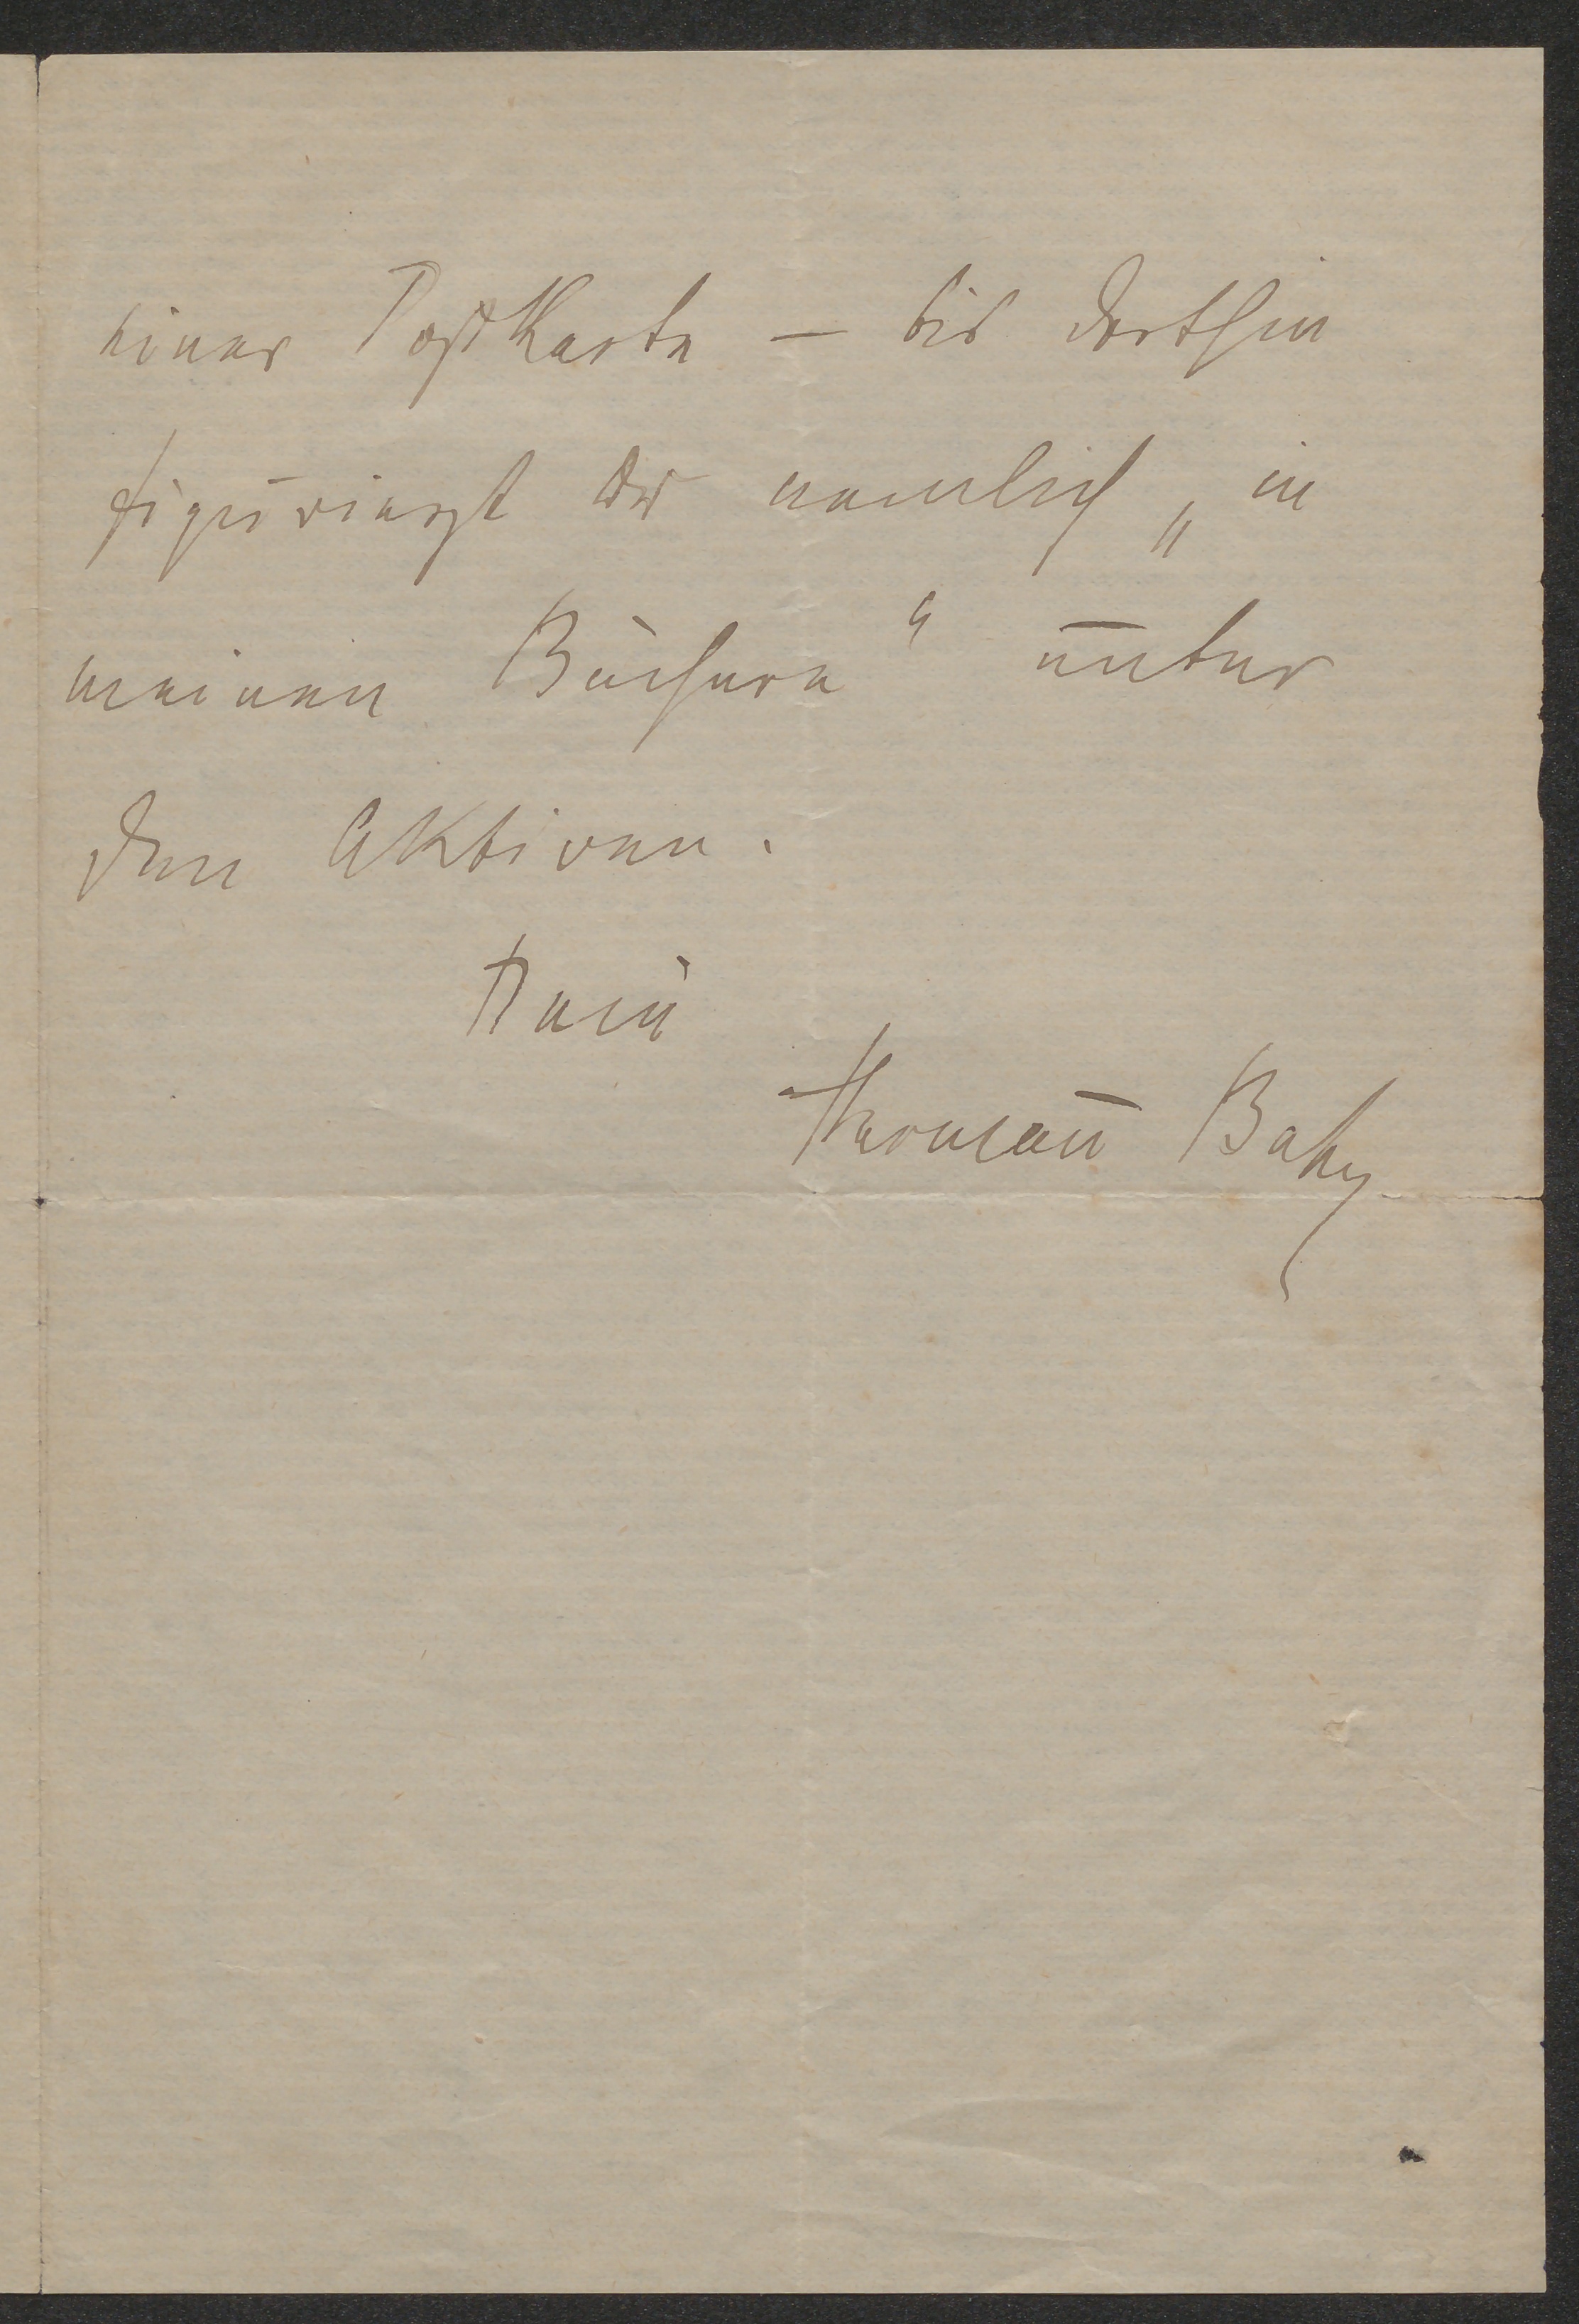 einer Postkarte – bis dorthin
figurierst Du nemlich „in
meinen Büchern“ unter
den Aktiven.
Dein
Hermann̄ Bahr